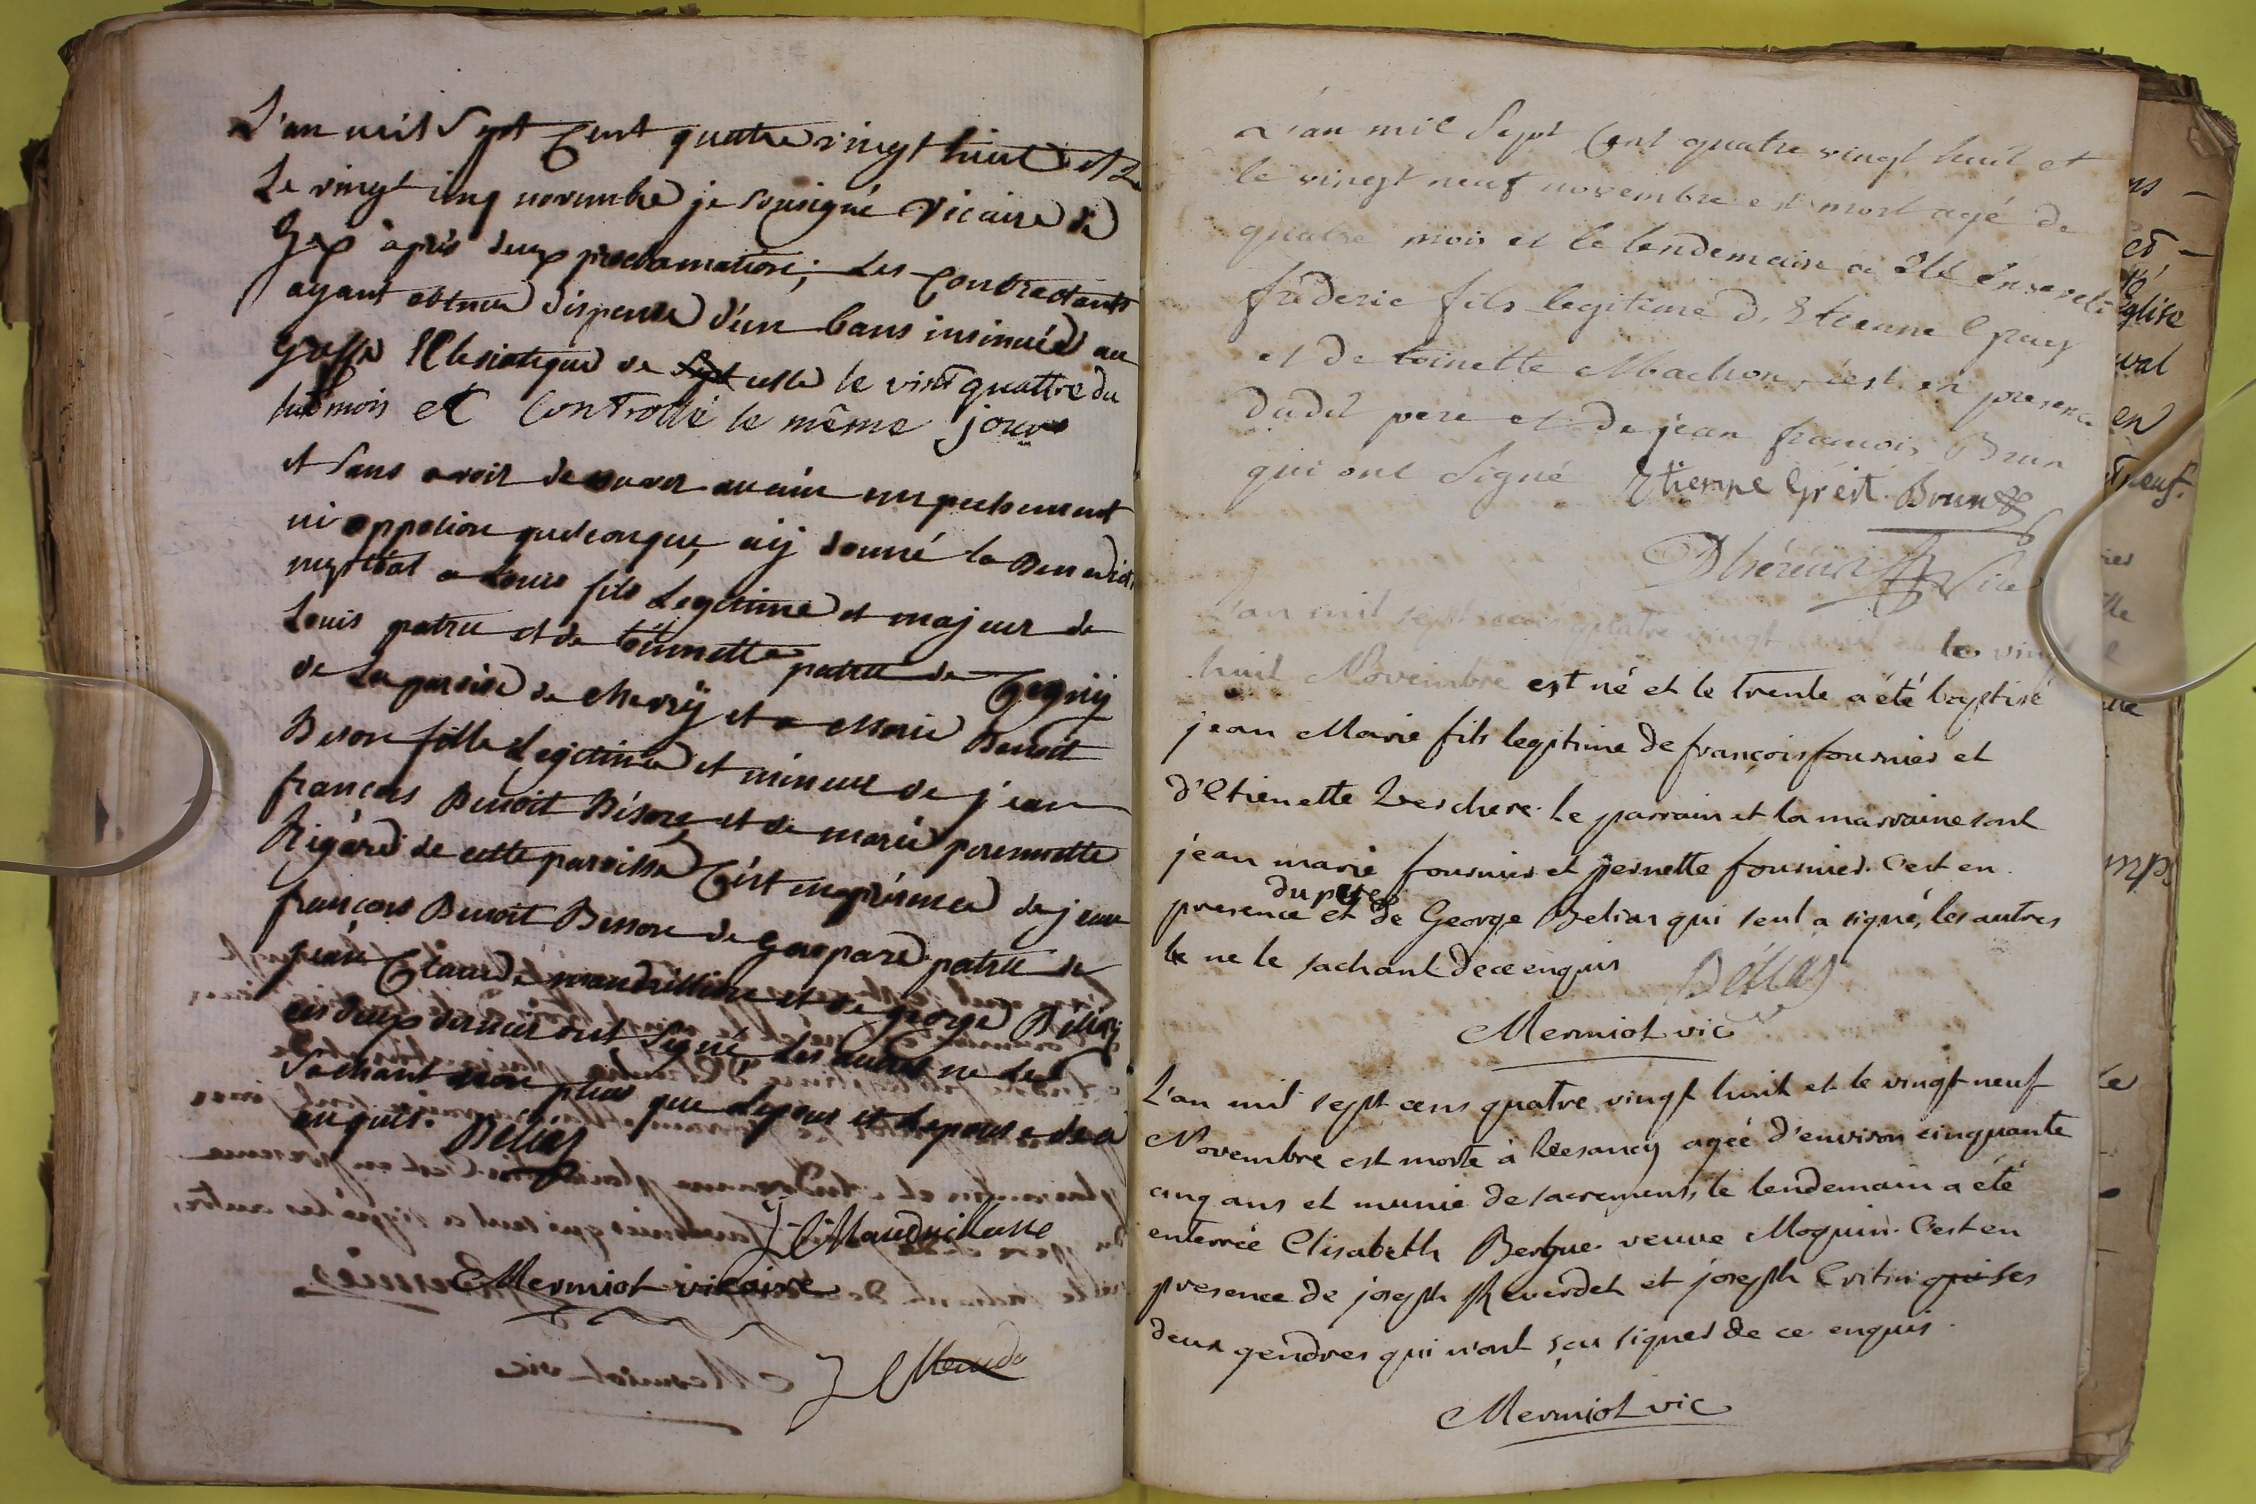 L'an mil Sept Cent quatre vingt huit et
Le vingt cinq novembre je sousigné Vicaire de
Gex après deux proclamations; Les Contractants
ayant obtenu dispense d'un bans insinuée au
Greffe Eclesiatique de celle le vint quattre du
mois et Controllé le même jour
et sans avoir decouver aucun empechement
ni oppotion quelconque, aÿ donné la Benedict
nuptial a Louis fils Legitime et majeur de
Louis patru et de toinette patru de Gegnÿ
de La paroise de chevrÿ et a Marie Benoit
Beson fille Legitime et mineur de jean
françois Benoit Béson et de marie pernnette
Rigard de cette paroisse C'est en présence de jean
françois Benoit Besson de Gaspard patru de
jean Claude maudrillione et de george Délias
ces deux dernier ont Signé, Les autres ne Le
Sachant non plus que Lepoux et Lepouse de ce
enquis. Délias
J C Maudrillone
Mermiot vicaire
J C Maud
L'an mil Sept Cent quatre vingt huit et
le vingt neuf novembre est mort agé de
quatre mois et le lendemain a été Enseveli
fréderic fils legitime d. Etienne Gpay
et de toinette Machon, c'est en presence
dudit pere et de jean francois Brun
qui ont Signé Etienne Brun
Vic
L'an mil sept cens quatre vingt huit et le vingt
huit Novembre est né et le trente a été baptisé
jean Marie fils legitime de françois fournier et
d'Etienette Verchere. le parrain et la marraine sont
jean marie fournier et pernette fournier. C'est en
du pere
presence et de George Belias qui seul a signé, les autres
ne le sachant de ce enquis Délias
Mermiot vic
L'an mil sept cens quatre vingt huit et le vingt neuf
Novembre est morte à agée d'environ cinquante
cinq ans et munie de sacremens, le lendemain a été
enterrée Elisabeth Bergue veuve Moquin. C'est en
presence de joseph Reverdet et joseph Critin ses
deux gendres qui n'ont sçu signer de ce enquis.
Mermiot vic